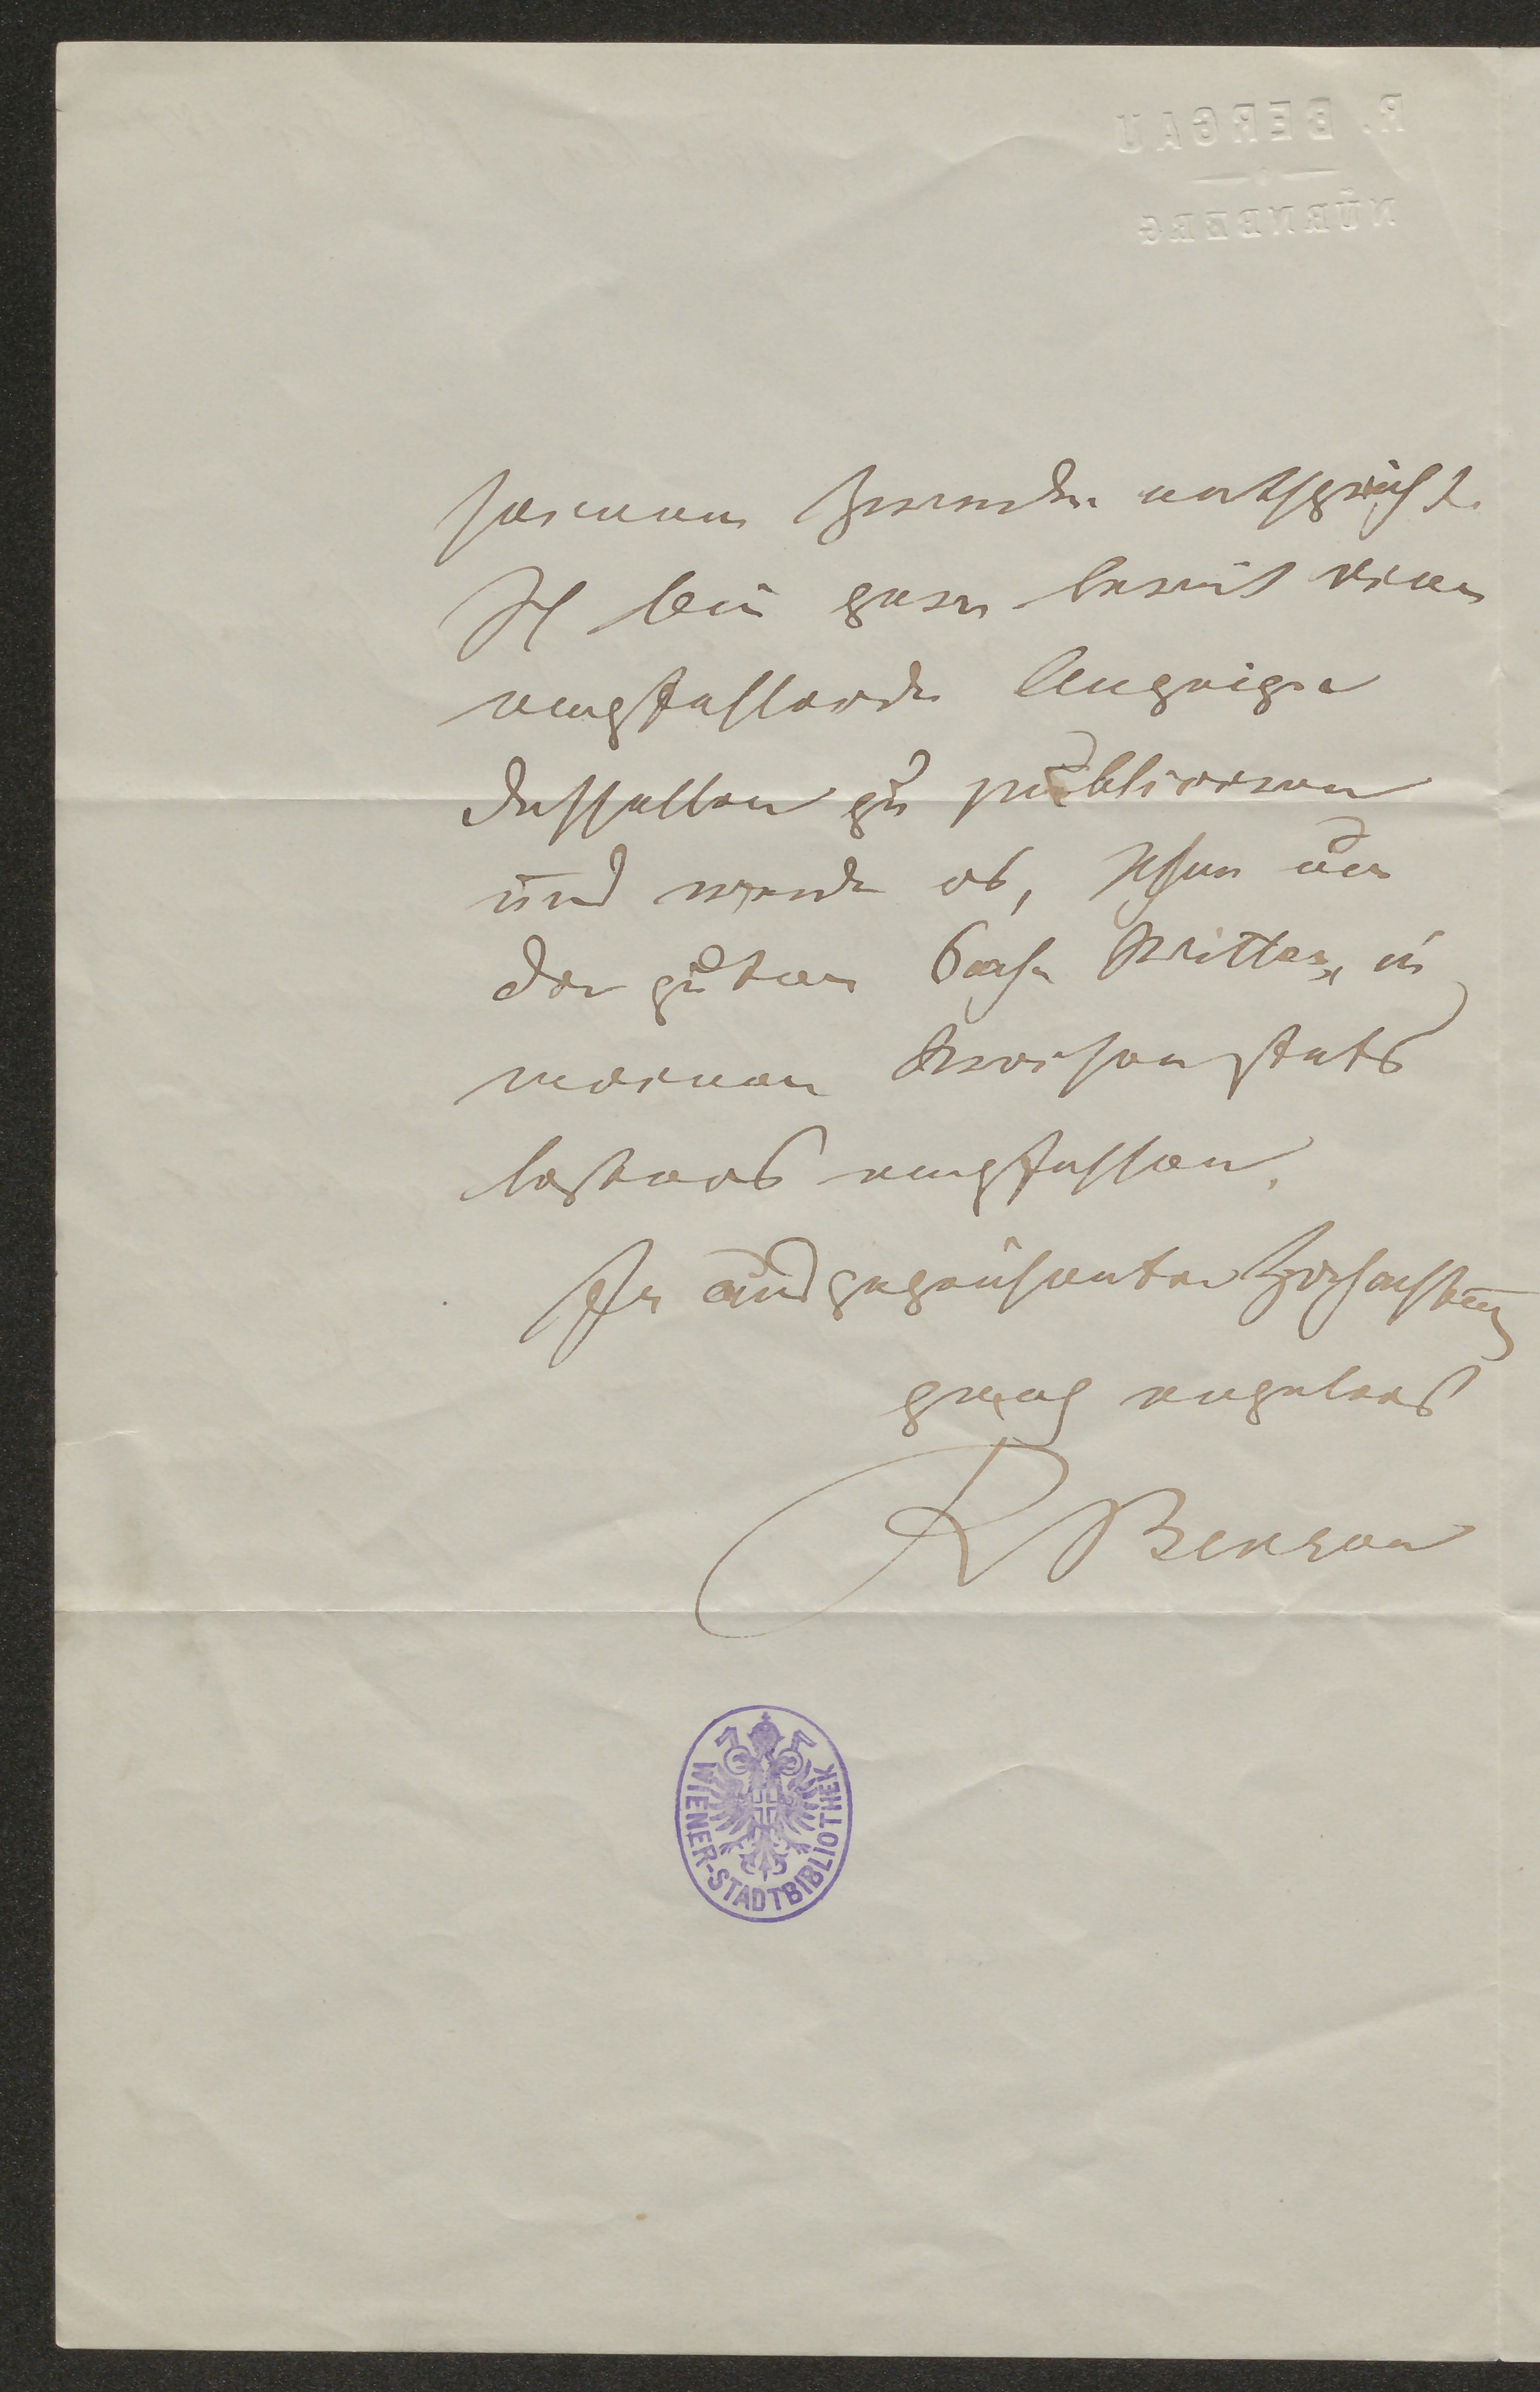 R. BERGAU
NÜRNBERG
seinem Zwecke entspricht.
Ich bin gern bereit eine
empfehlende Anzeige
desselben zu publicieren
und werde es, schon um
der guten Sache Willen, in
meinen Kreisen stets
bestens empfehlen.
In ausgezeichneter Hochachtung
ganz ergebenst
R Bergau
WIENER-STADTBIBLIOTHEK